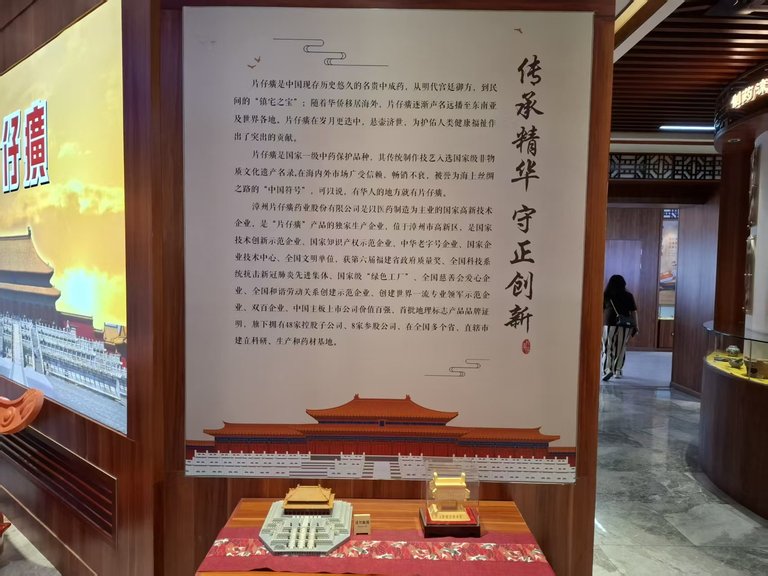 传承精华 守正创新
片仔癀是中国现存历史悠久的名贵中成药，从明代宫廷御方，到民
间的“镇宅之宝”；随着华侨移居海外，片仔癀逐渐声名远播至东南亚
及世界各地。片仔癀在岁月更迭中，悬壶济世，为护佑人类健康福祉作
出了突出的贡献。
片仔癀是国家一级中药保护品种，其传统制作技艺入选国家级非物
质文化遗产名录，在海内外市场广受信赖、畅销不衰，被誉为海上丝绸
之路的“中国符号”，可以说，有华人的地方就有片仔癀。
漳州片仔癀药业股份有限公司是以医药制造为主业的国家高新技术
企业，是“片仔癀”产品的独家生产企业，位于漳州市高新区，是国家
技术创新示范企业、国家知识产权示范企业、中华老字号企业、国家企
业技术中心、全国文明单位，获第六届福建省政府质量奖、全国科技系
统抗击新冠肺炎先进集体、国家级“绿色工厂”、全国慈善会爱心企
业、全国和谐劳动关系创建示范企业、创建世界一流专业领军示范企
业、双百企业、中国主板上市公司价值百强、首批地理标志产品品牌证
明，旗下拥有48家控股子公司、8家参股公司，在全国多个省、直辖市
建立科研、生产和药材基地。
仔癀